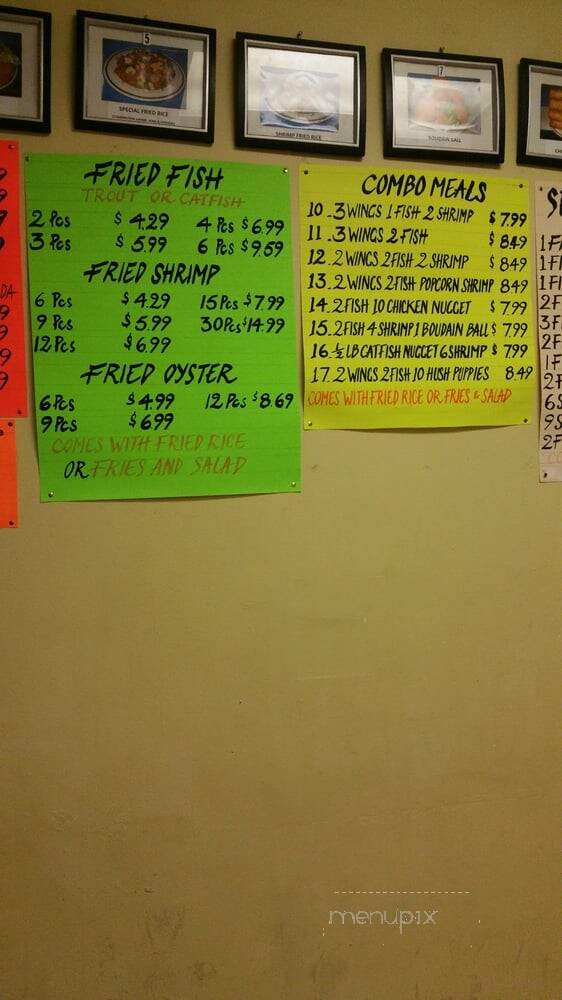 5
SPECIAL FRIED RICE
SHRIMP FRIED RICE
7
BOUDAIN BALL
FRIED FISH
TROUT OR CATFISH
2 Pcs $ 4.29 4 Pcs $6.99
3 Pcs $ 5.99 6 Pcs $9.59
FRIED SHRIMP
6 Pcs $4.29 15Pcs $7.99
9 Pcs $5.99 30Pcs $14.99
12Pcs $6.99
FRIED OYSTER
6Pcs $4.99 12Pcs $8.69
9Pcs $6.99
COMES WITH FRIED RICE
OR FRIES AND SALAD
COMBO MEALS
10_3 WINGS 1 FISH 2 SHRIMP $7.99
11_3 WINGS 2 FISH $8.49
12_2 WINGS 2 FISH 2 SHRIMP $8.49
13_2 WINGS 2 FISH POPCORN SHRIMP 8.49
14_2 FISH 10 CHICKEN NUGGET $7.99
15_2 FISH 4 SHRIMP 1 BOUDAIN BALL $7.99
16_½ LB CATFISH NUGGET 6 SHRIMP $7.99
17_2 WINGS 2 FISH 10 HUSH PUPPIES 8.49
COMES WITH FRIED RICE OR FRIES & SALAD
menupix